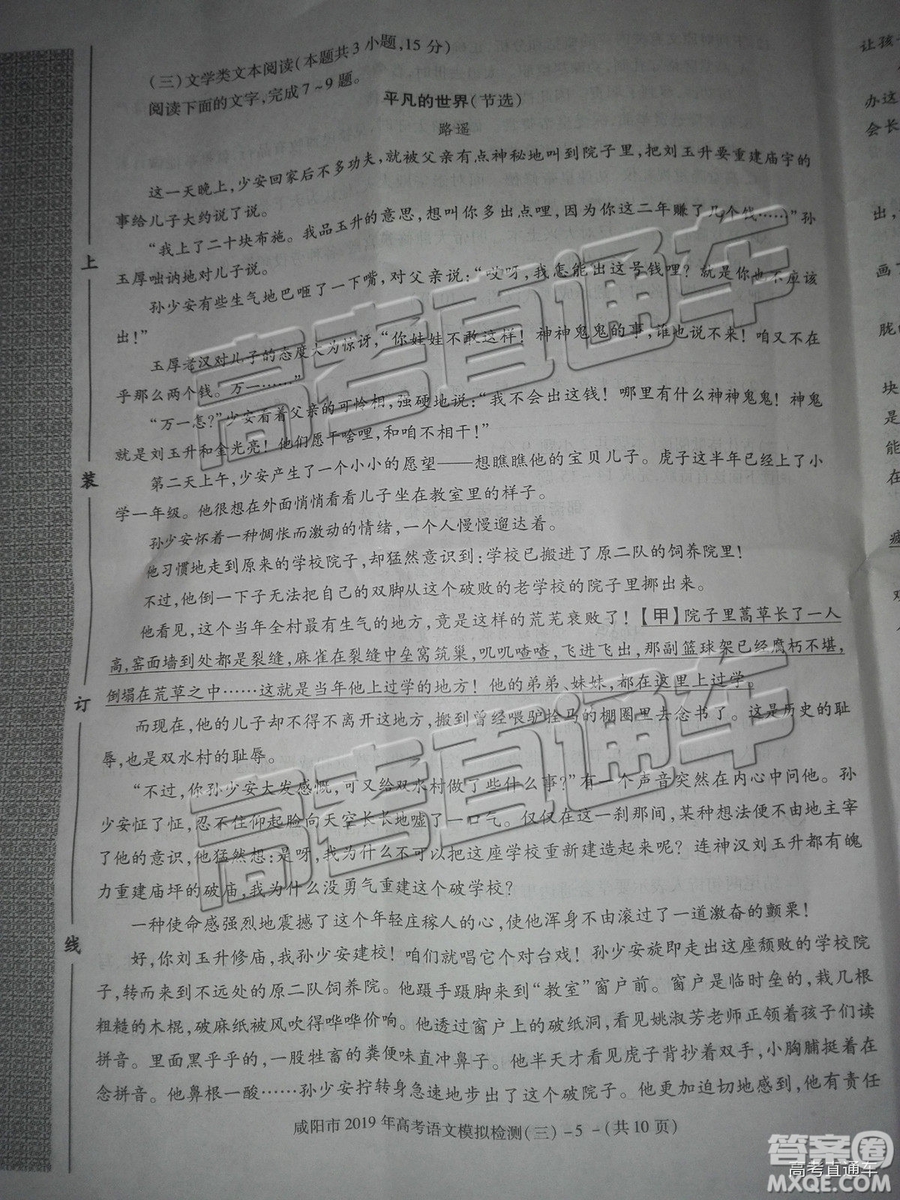 (三)文学类文本阅读(本题共3小题,15分)
阅读下面的文字,完成7~9题。
平凡的世界(节选)
路遥
这一天晚上,少安回家后不多功夫,就被父亲有点神秘地叫到院子里,把刘玉升要重建庙宇的
事给儿子大约说了说。
“我上了二十块布施。我品玉升的意思,想叫你多出点哩,因为你这二年赚了几个钱……”孙
玉厚咄讷地对儿子说。
孙少安有些生气地巴咂了一下嘴,对父亲说:“哎呀,我怎能出这号钱哩?就是你也不应该
出!”
玉厚老汉对儿子的态度大为惊讶,“你娃娃不敢这样!神神鬼鬼的事,谁也说不来!咱又不在
乎那么两个钱。万一……”
“万一怎?”少安看着父亲的可怜相,强硬地说:“我不会出这钱!哪里有什么神神鬼鬼!神鬼
就是刘玉升和金光亮!他们愿平啥哩,和咱不相干!”
第二天上午,少安产生了一个小小的愿望——想瞧瞧他的宝贝儿子。虎子这半年已经上了小
学一年级。他很想在外面悄悄看看儿子坐在教室里的样子。
孙少安怀着一种惆怅而激动的情绪,一个人慢慢遛达着。
他习惯地走到原来的学校院子,却猛然意识到:学校已搬进了原二队的饲养院里!
不过,他倒一下子无法把自己的双脚从这个破败的老学校的院子里挪出来。
他看见,这个当年全村最有生气的地方,竟是这样的荒芜衰败了!【甲】院子里蒿草长了一人
高,窑面墙到处都是裂缝,麻雀在裂缝中垒窝筑巢,叽叽喳喳,飞进飞出,那副篮球架已经腐朽不堪,
倒塌在荒草之中……这就是当年他上过学的地方!他的弟弟、妹妹,都在这里上过学。
而现在,他的儿子却不得不离开这地方,搬到曾经喂驴拴马的棚圈里去念书了。这是历史的耻
辱,也是双水村的耻辱。
“不过,你孙少安大发感慨,可又给双水村做了些什么事?”有一个声音突然在内心中问他。孙
少安怔了怔,忍不住仰起脸向天空长长地嘘了一口气。仅仅在这一刹那间,某种想法便不由地主宰
了他的意识,他猛然想:是呀,我为什么不可以把这座学校重新建造起来呢?连神汉刘玉升都有魄
力重建庙坪的破庙,我为什么没勇气重建这个破学校?
一种使命感强烈地震撼了这个年轻庄稼人的心,使他浑身不由滚过了一道激奋的颤栗!
好,你刘玉升修庙,我孙少安建校!咱们就唱它个对台戏!孙少安旋即走出这座颓败的学校院
子,转而来到不远处的原二队饲养院。他蹑手蹑脚来到“教室”窗户前。窗户是临时垒的,栽几根
粗糙的木棍,破麻纸被风吹得哗哗价响。他透过窗户上的破纸洞,看见姚淑芳老师正领着孩子们读
拼音。里面黑乎乎的,一股牲畜的粪便味直冲鼻子。他半天才看见虎子背着双手,小胸脯挺着在
念拼音。他鼻根一酸……孙少安拧转身急速地步出了这个破院子。他更加迫切地感到,他有责任
咸阳市2019年高考语文模拟检测(三)-5-(共10页)
上
装
订
线
让孩
办这
会长
出,
画
胧的
块
是
在
高考直通车
高考直通车
答案圈
高考直通车
MXQE.COM